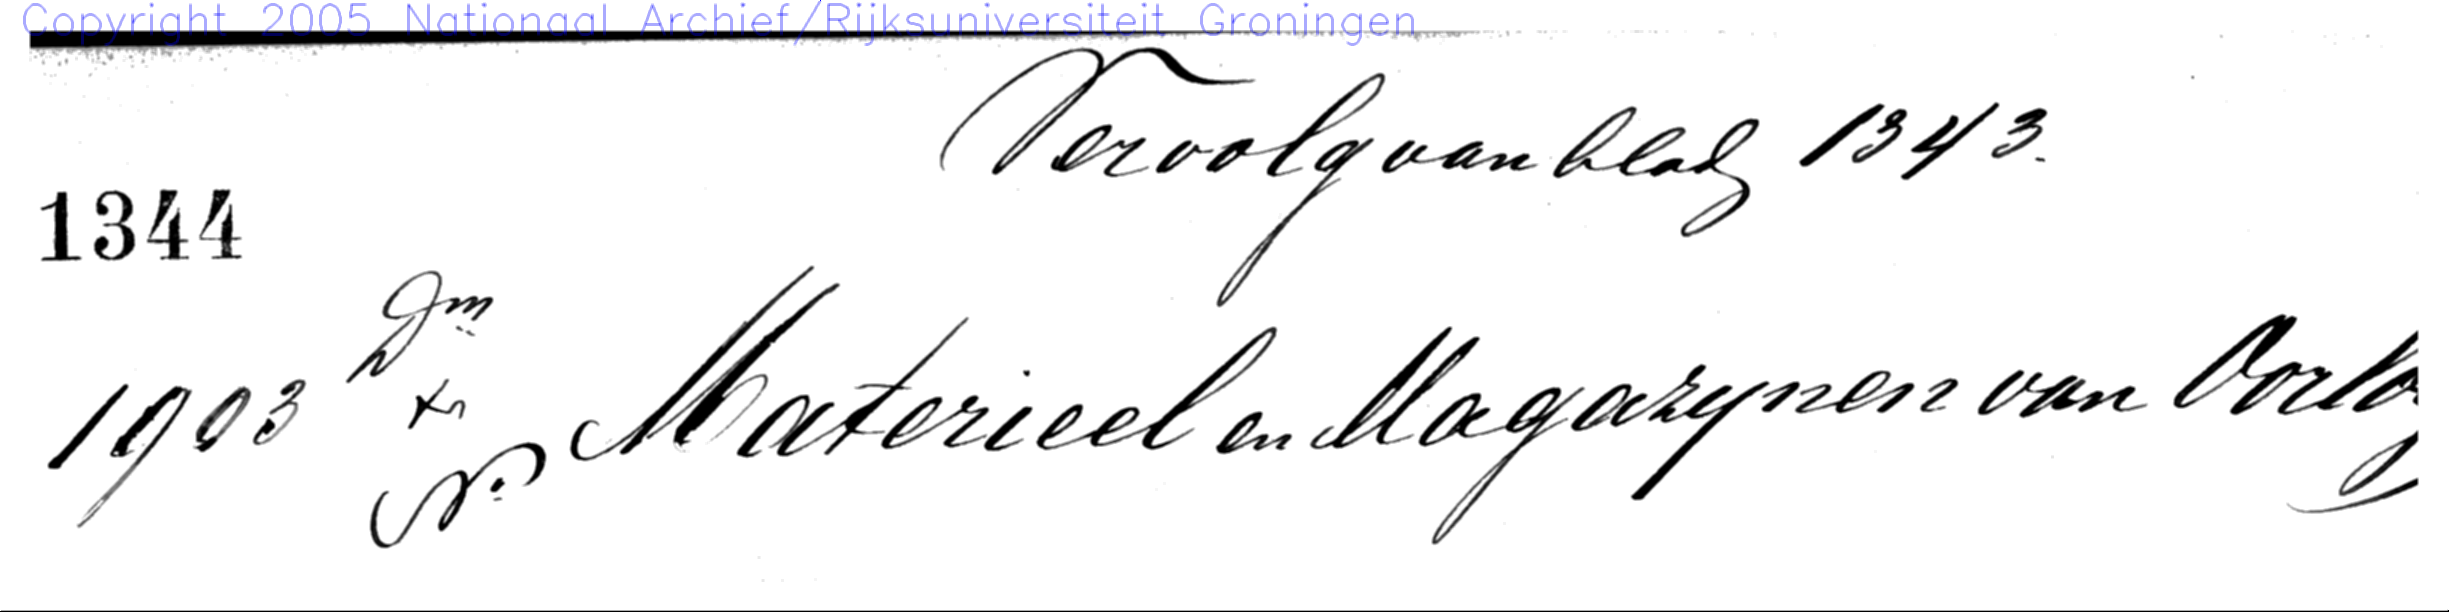 Copyright 2005 Nationaal Archief/Rijksuniversiteit Groningen
Vervolg van bladz 1343.
1344
Dm
1903 en Materieel en Magazynen van Oorlog
No